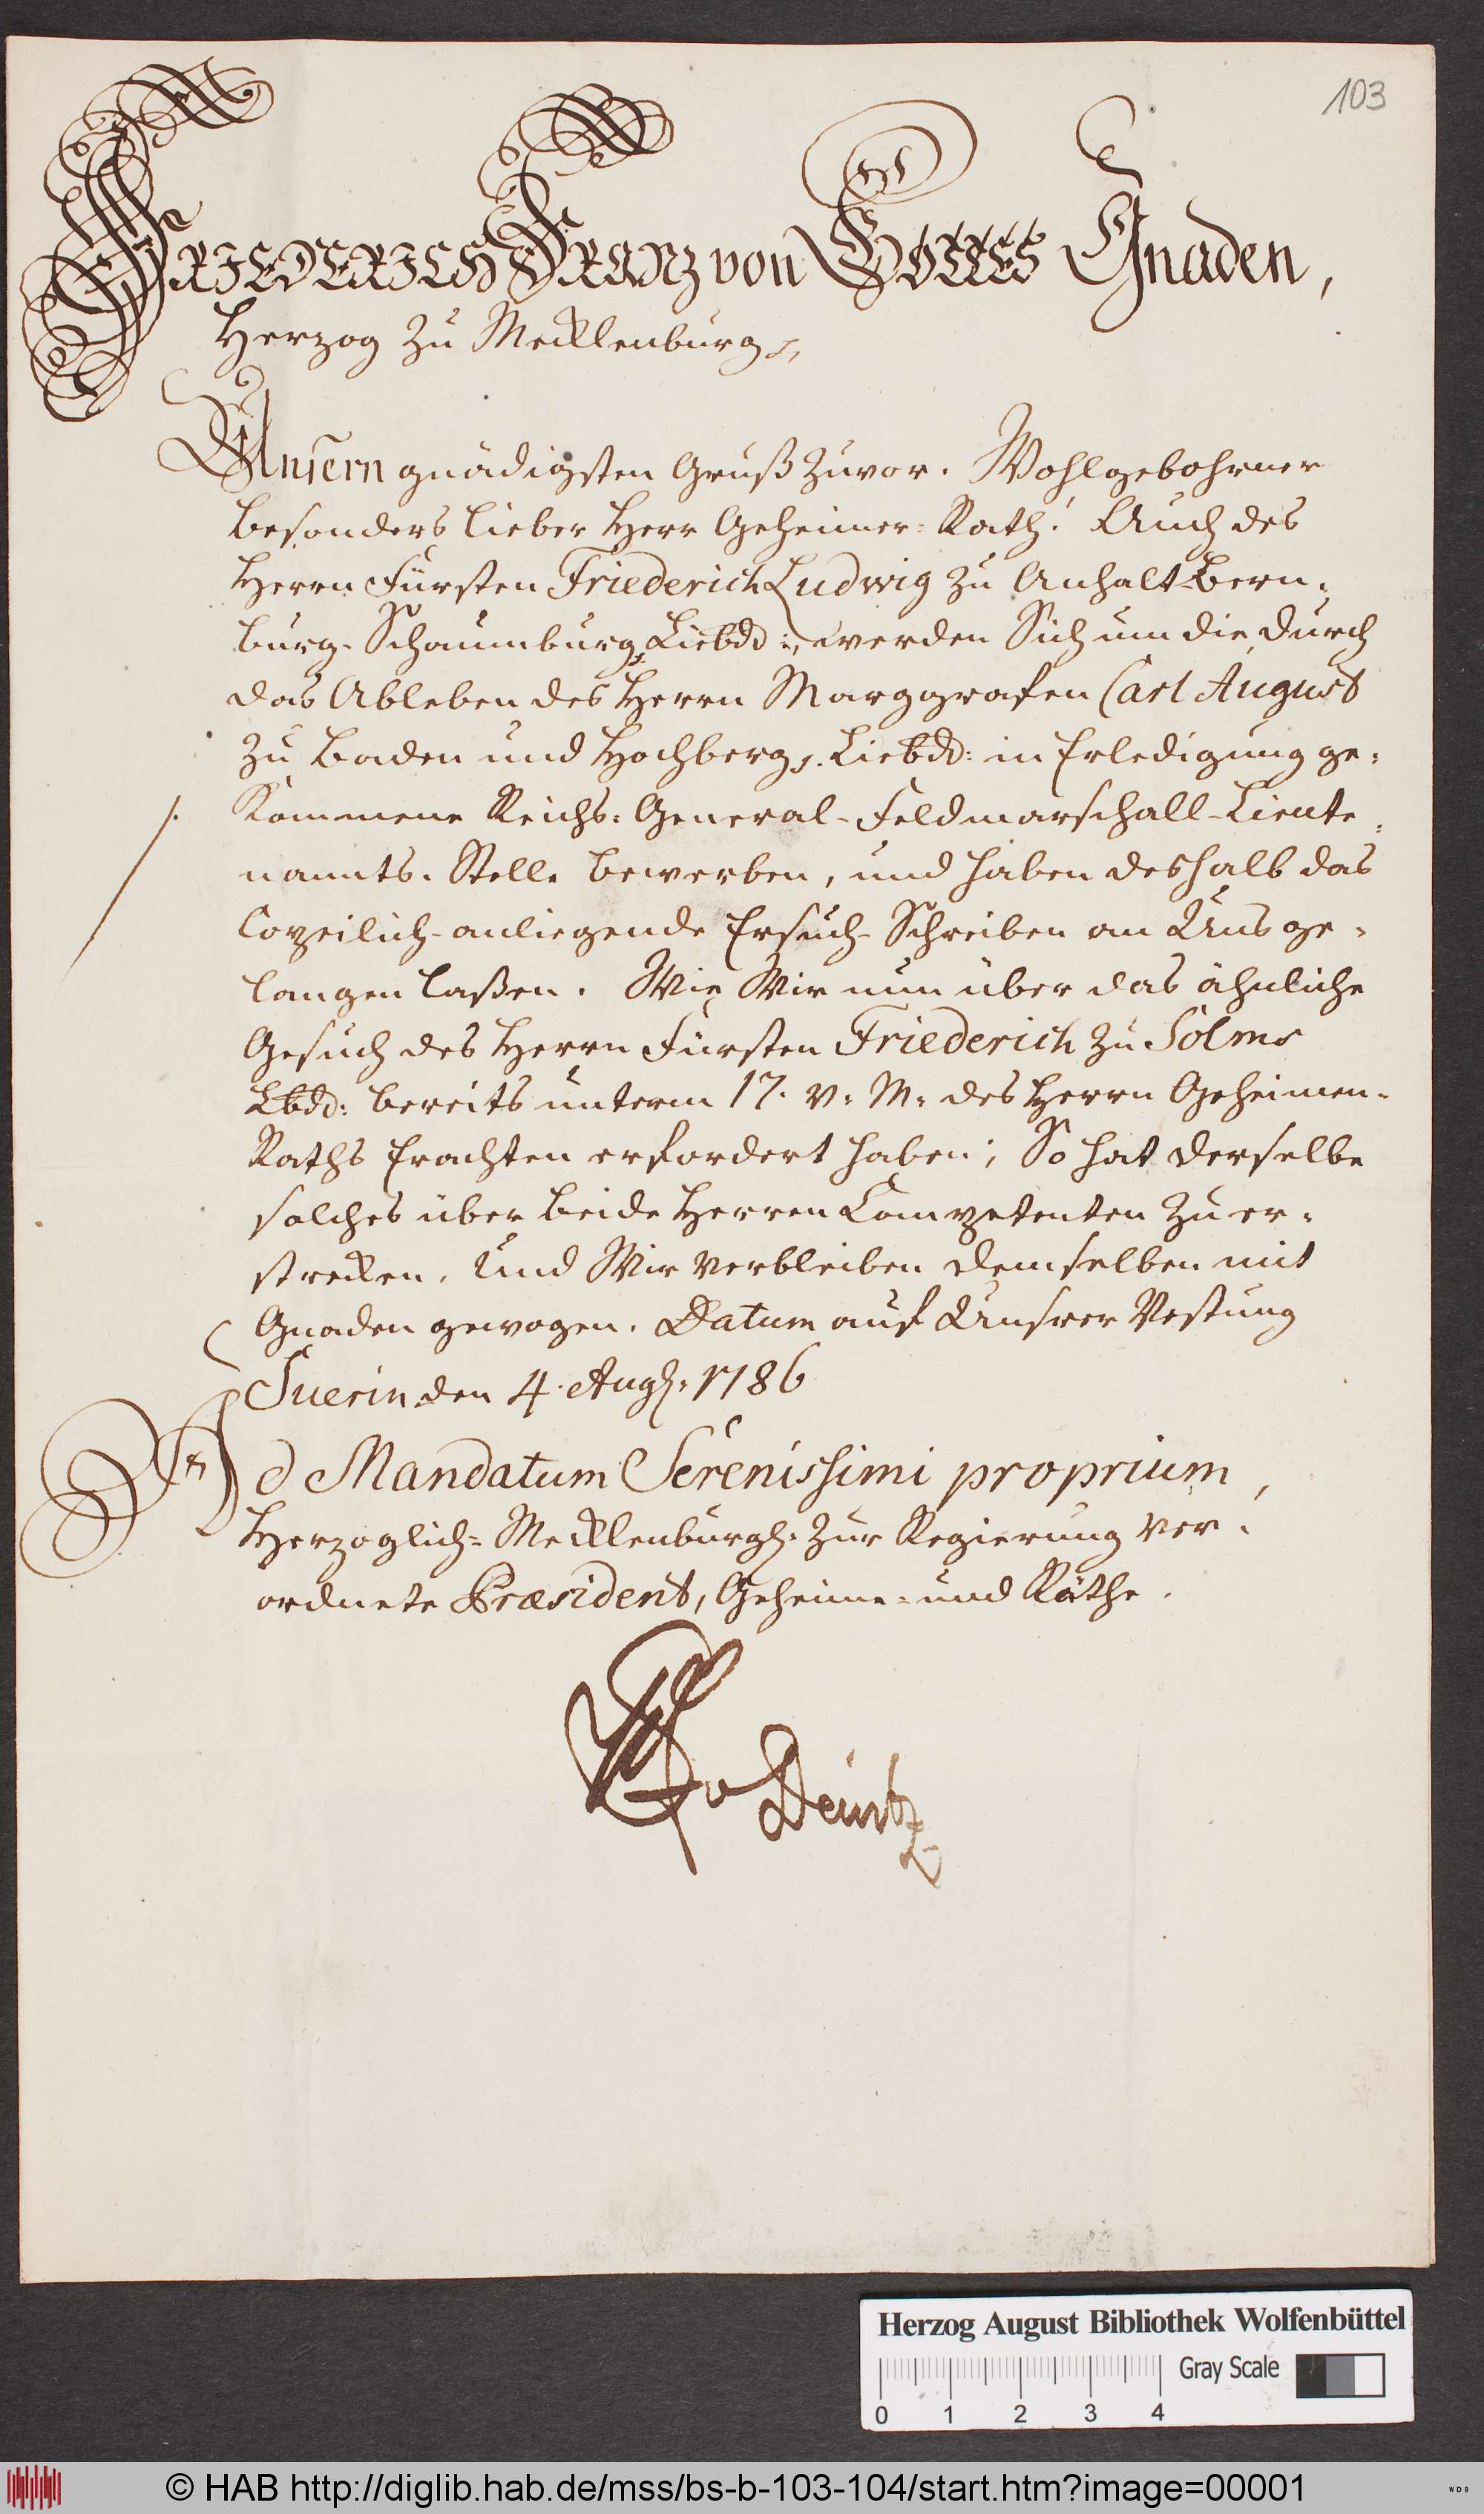 103
FRIEDERICH FRANZ von GOTTES Gnaden,
Herzog zu Mecklenburg
Unsern gnädigsten Gruß zuvor. Wohlgebohrner
besonders lieber Herr Geheimer-Rath! Auch des
Herrn Fürsten Friederich Ludwig zu Anhalt-Bern-
burg-Schaumburg Liebdd: werden Sich um die, durch
das Ableben des Herrn Marggrafen Carl August
zu Baden und Hochberg Liebdd: in Erledigung ge-
kommene Reichs-General-Feldmarschall-Lieute-
nannts-Stelle bewerben, und haben deshalb das
copeilich-anliegende Ersuch-Schreiben an Uns ge-
langen laßen. Wie Wir nun über das ähnliche
Gesuch des Herrn Fürsten Friederich zu Solms
Lbdd: bereits unterm 17. v: M: des Herrn Geheimen-
Raths Erachten erfordert haben; So hat derselbe
solches über beide Herren Competenten zu er-
strecken. Und Wir verbleiben demselben mit
Gnaden gewogen. Datum auf Unsrer Vestung
Suerin den 4. Aug: 1786
Ad Mandatum Serenissimi proprium,
Herzoglich-Mecklenburgl. zur Regierung ver-
ordnete Præsident, Geheime- und Räthe.
v Dewitz
Herzog August Bibliothek Wolfenbüttel
Gray Scale
0 1 2 3 4
© HAB http://diglib.hab.de/mss/bs-b-103-104/start.htm?image=00001
WDB